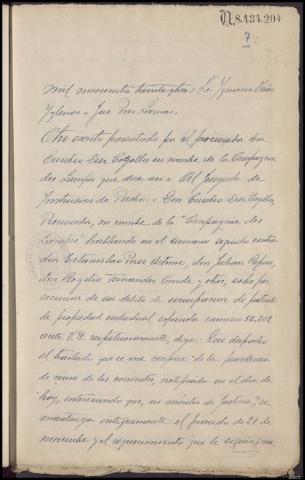 N.8.434.204
7
mil novecientos treinta y tres = L. Ygnacio
Yglesias = Jose
Otro escrito presentado por el procurador don
Eusebio Diez Cogollos en nombre de la Compagnie
des Lampes que dice asi = Al Juzgado de
Instrucción de = Don Eusebio Diez Cogollos,
Procurador, en nombre de la "Compagnie des
Lampes" habilitado en el sumario seguido contra
don Estanislao Perez don Julian
don Rogelio Fernandez Conde y otros, sobre
de un delito de usurpacion de patente
de propiedad industrial española numero 56.202
ante V.S. respetuosamente, digo: Que
el traslado que se me confiere de la providencia
de cinco de los corrientes, notificada en el dia de
hoy, que, en méritos de Justicia, se
mantenga integramente el proveido de 28 de
noviembre y el requerimiento que le